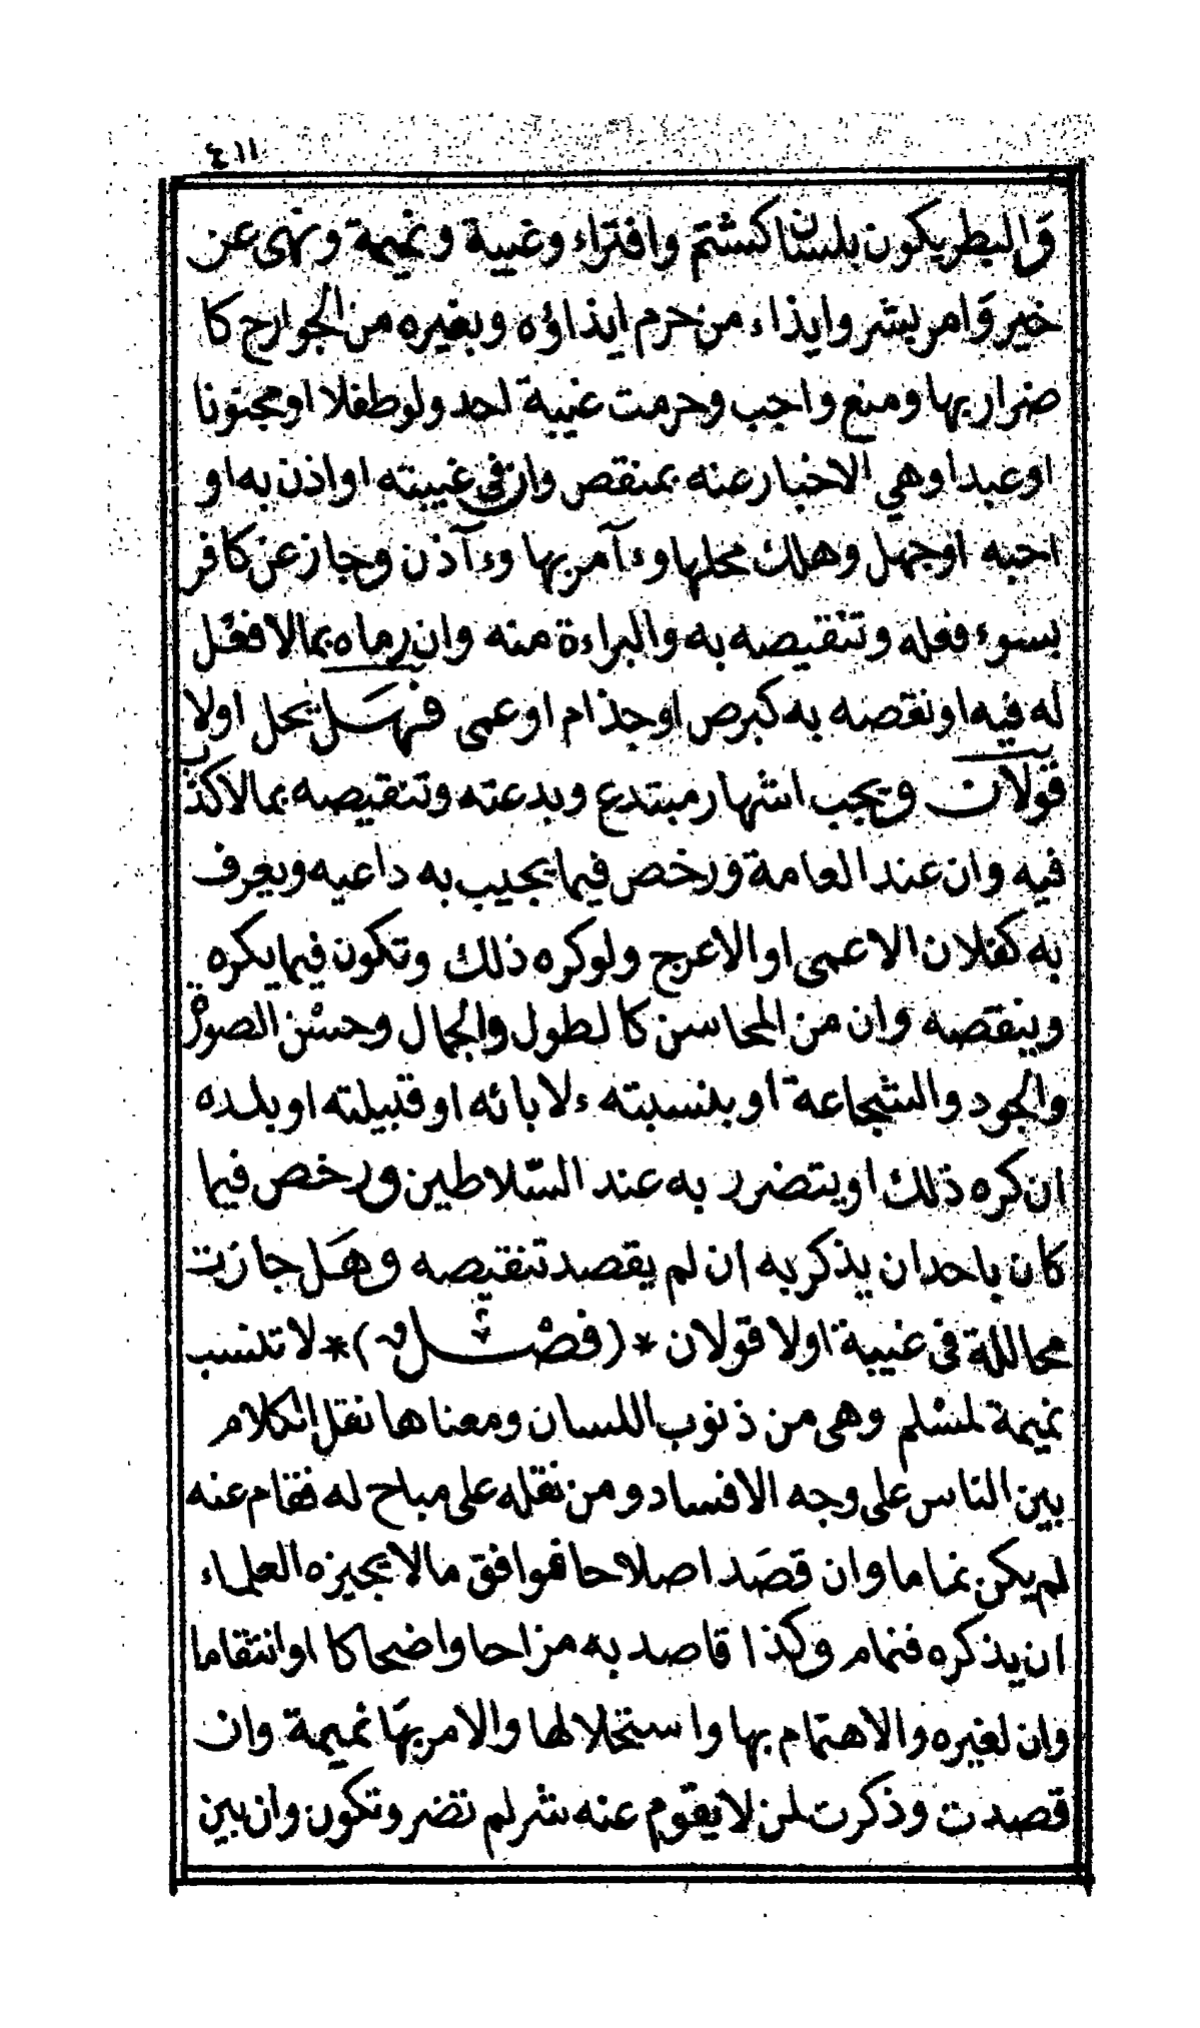 ٤١١
والبطر يكون بلسان كشتم وافتراء وغيبة ونميمة ونهى عن
خير وَامر بشر وايذاء من حرم ايذاؤه وبغيره من الجوارح كا
ضرار بها ومنع واجب وحرمت غيبة احد ولو طفلا او مجنونا
او عبدا وهي الاخبار عنه بمنقص وان في غيبته او اذن به او
احبه او جهل وهلك محلها وءآمر بها وءآذن وجاز عن كافر
بسوء فعله وتنقيصه به والبراءة منه وان رماه بمالا فعل
له فيه او نقصه به كبرص او جذام او عمى فهل يحل اولا
قولان ويجب اشهار مبتدع وبدعته وتنقيصه بمالا كذب
فيه وان عند العامة ورخص فيما يجيب به داعيه ويعرف
به كفلان الاعمى او الاعرج ولو كره ذلك وتكون فيما يكره
وينقصه وان من المحاسن كالطول والجمال وحسْن الصورة
والجود والشجاعة او بنسبته ءلابائه او قبيلته او بلده
ان كره ذلك او يتضرر به عند السّلاطين ورخص فيما
كان باحد ان يذكر به ان لم يقصد تنقيصه وهل جازت
محاللة في غيبة اولا قولان * (فصْل) * لا تنسب
نميمة لمسْلم وهي من ذنوب اللسان ومعناها نقل الكلام
بين الناس على وجه الافساد ومن نقله على مباح له فقام عنه
لم يكن نماما وان قصَد اصلاحا فوافق مالا يجيزه العلماء
ان يذكره فنمام وكذا قاصد به مزاحا واضحاكا او انتقاما
وان لغيره والاهتمام بها واستخلالها والامر بهَا نميمة وان
قصدت وذكرت لمن لا يقوم عنه شر لم تضر وتكون وان بين